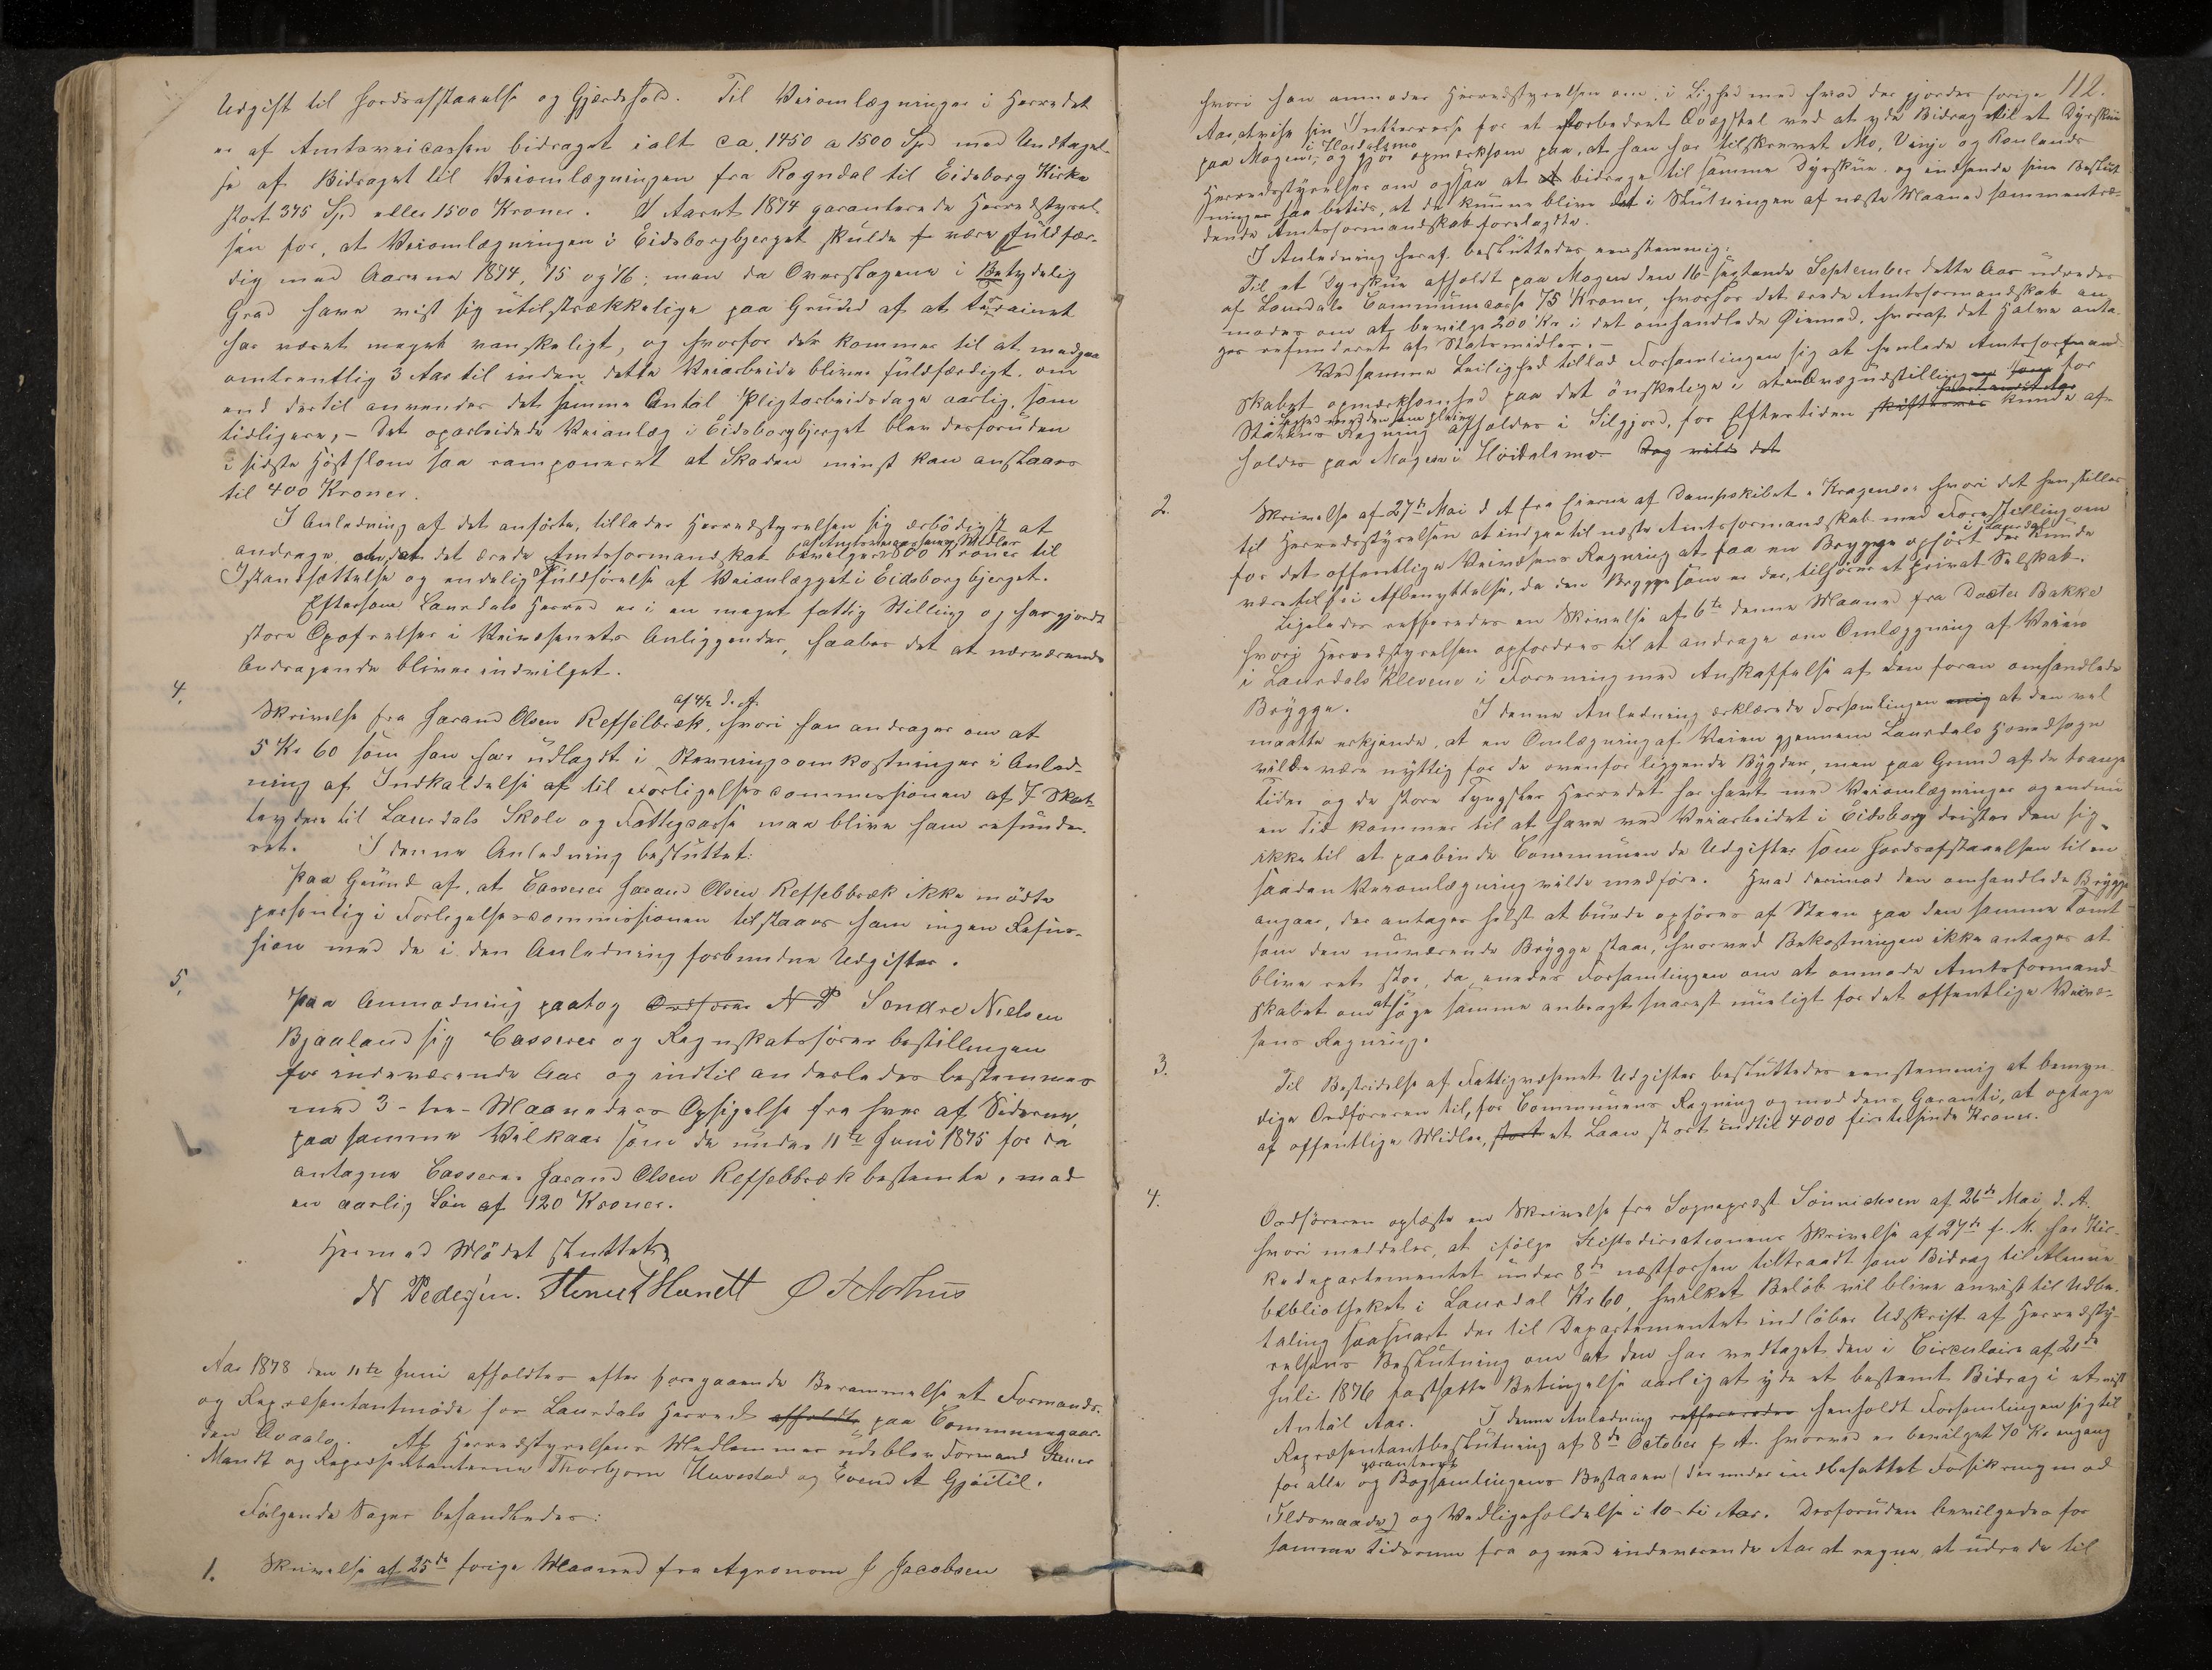 Udgift til Jordafstaaelse og Gjærdehold. Til Veiomlægninger i Herredet
er af Amtsveicassen bidraget ialt ca. 1450 a 1500 Spd med Undtagel-
se af Bidraget til Veiomlægningen fra Rogndal til Eidsborg Kirke
stort 375 Spd eller 1500 Kroner. I Aaret 1874 garanterede Herredstyrel-
sen for, at Veiomlægningen i Eidsborgbjerget skulde være fuldfær-
dig med Aarene 1874, 75 og 76; men da Overslagene i Betydelig
Grad have vist sig utilstrækkelige paa Grund af at terrainet
har været meget vanskeligt, og hvorfor det kommer til at medgaa
omtrentlig 3 Aar til inden dette Veiarbeide bliver fuldfærdigt, om
end dertil anvendes det samme Antal Pligtarbeidsdage aarlig, som
tidligere, – Det oparbeidede Veianlæg i Eidsborgbjerget blev desforuden
i sidste Høstflom saa ramponeret at Skaden mindst kan anslaaes
til 400 Kroner.
I Anledning af det anførte, tillader Herredstyrelsen sig ærbødigst at
andrage om, at det ærede Amtsformandskab af Amtsveicassens Midler bevilger 800 Kroner til
Istandsættelse og endelig Fuldførelse af Veianlægget i Eidsborgbjerget.
Eftersom Laurdals Herred er i en meget fattig Stilling og har gjort
store Opofrelser i Veivæsenets Anliggender, haabes det at nærværende
Andragende bliver indvilget.
4. Skrivelse fra Jarand Olsen Reffelbræk, af 4/2 d. A. hvori han andrager om at
5 Kr 60 som han har udlagt i Stevningsomkostninger i Anled-
ning af Indkaldelse af til Forligelsescommissionen af 7 Skat-
teydere til Laurdals Skole og Fattigcasse maa blive ham refunde-
ret. I denne Anledning besluttet:
Paa Grund af, at Casserer Jarand Olsen Reffelbræk ikke mødte
personlig i Forligelsescommissionen tilstaaes ham ingen Refu-
sion med de i den Anledning forbundne Udgifter.
5. Paa Anmodning paatog Ordfører N P Sondre Nielsen
Bjaaland sig Casserer og Regnskabsfører bestillingen
for indeværende Aar og indtil anderledes bestemmes
med 3 - tre - Maaneders Opsigelse fra hver af Siderne,
paa samme Vilkaar som de under 11te Juni 1875 for da
antagne Casserer Jarand Olsen Reffelbræk bestemte, med
en aarlig Løn af 120 Kroner.
Hermed Mødet sluttet
N Pedersen. Steners Mandt Ø F Aarhus
Aar 1878 den 11te Juni afholdtes efter foregaaende Berammelse et Formands-
og Repræsentantmøde for Laurdals Herred afholdt paa Communegaar-
den Kvaalo. Af Herredstyrelsens Medlemmer udeblev Formand Stener
Mandt og Repræsentanterne Thorbjørn Huvestad og Svend A Gjøitil.
Følgende Sager behandledes:
1. Skrivelse af 25de forige Maaned fra Agronom J Jacobsen
112.
hvori han anmoder Herredstyrelsen om, i Lighed med hvad der gjordes forige
Aar, at vise sin Interresse for et forbedret Qvægstel ved at yde Bidrag til et Dyrskue
paa Mogen, i Høidalsmo og gjør opmerksom paa, at han har tilskrevet Mo, Vinje og Raulands
Herredstyrelser om ogsaa at bidrage til samme Dyrskue og indsende sine Beslut-
ninger saa betids, at de kunne blive det i Slutningen af næste Maaned sammentræ-
dende Amtsformandskab forelagte.
I Anledning heraf besluttedes eenstemmig:
Til et Dyrskue afholdt paa Mogen den 16 - sextende September dette Aar udredes
af Laurdals Communecasse 75 Kroner, hvorhos det ærede Amtsformandskab an-
modes om at bevilge 200 Kr i det omhandlede Øiemed, hvoraf det Halve anta-
ges refunderet af Statsmidler. –
Ved samme Leilighed tillod Forsamlingen sig at henlede Amtsformand-
skabet opmærksomhed paa det ønskelige i at en Qvægudstilling som for
Statens Regning afholdes i Silgjord, for Eftertiden skiftesvis kunde af-
holdes paa Mogen i Høidalsmo. Dog vilde det
2. Skrivelse af 27de Mai d A fra Eierne af Dampskibet "Kragerø" hvori det henstilles
til Herredstyrelsen at indgaa til næste Amtsformandskab med Forestilling om
for det offentlige Veivæsens Regning at faa en Brygge opført i Laurdal der kunde
være til fri Afbenyttelse, da den Brygge som er der, tilhører et privat Selskab.
Ligeledes refferedes en Skrivelse af 6te denne Maaned fra Doctor Bakke
hvori Herredstyrelsen opfordres til at andrage om Omlægning af Veien
i Laurdals Klevene i Forening med Anskaffelse af den foran omhandlede
Brygge. I denne Anledning erklærede Forsamlingen enig at den vel
maatte erkjende, at en Omlægning af Veien gjennem Laurdals Hovedsogn
vilde være nyttig for de ovenfor liggende Bygder, men paa Grund af de trange
Tider og de store Tyngsler Herredet har havt med Veiomlægninger og endnu
en Tid kommer til at have ved Veiarbeidet i Eidsborg drister den sig
ikke til at paabinde Communen de Udgifter som Jordafstaaelsen til en
saadan Veiomlægning vilde medføre. Hvad derimod den omhandlede Brygge
angaar, der antages helst at burde opføres af Steen paa den samme Tomt
som den nuværende Brygge staar, hvorved Bekostningen ikke antages at
blive ret stor, da enedes Forsamlingen om at anmode Amtsformand-
skabet om at søge samme anbragt snarest muligt for det offentlige Veivæ-
sens Regning.
3. Til Bestridelse af Fattigvæsenets Udgifter besluttedes eenstemmig at bemyn-
dige Ordføreren til, for Communens Regning og mod dens Garanti, at optage
af offentlige Midler, stort et Laan stort indtil 4000 firetusinde Kroner.
4. Ordføreren oplæste en Skrivelse fra Sogneprest Sönnichsen af 26de Mai d. A.
hvori meddeles, at ifølge Stiftsdirectionens Skrivelse af 27de f. M. har Kir-
kedepartementet under 8de næstforhen tiltraadt som Bidrag til Almue-
bibliotheket i Laurdal Kr 60, hvilket Beløb vil blive anvist til Udbe-
taling saasnart der til Departementet indløber Udskrift af Herredsty-
relsens Beslutning om at den har vedtaget den i Circulaire af 21de
Juli 1876 fastsatte Betingelse aarlig at yde et bestemt Bidrag i et vist
Antal Aar. I denne Anledning refferereder henholdt Forsamlingen sig til
Repræsentantbeslutning af 8de October f. A. hvorved er bevilget 70 Kr engang
for alle og garanteret Bogsamlingens Bestaaen (derunder indbefattet Forsikring mod
Ildsvaade) og Vedligeholdelse i 10 - ti Aar. Desforuden bevilgedes for
samme Tidsrum fra og med indeværende Aar at regne, at udrede til